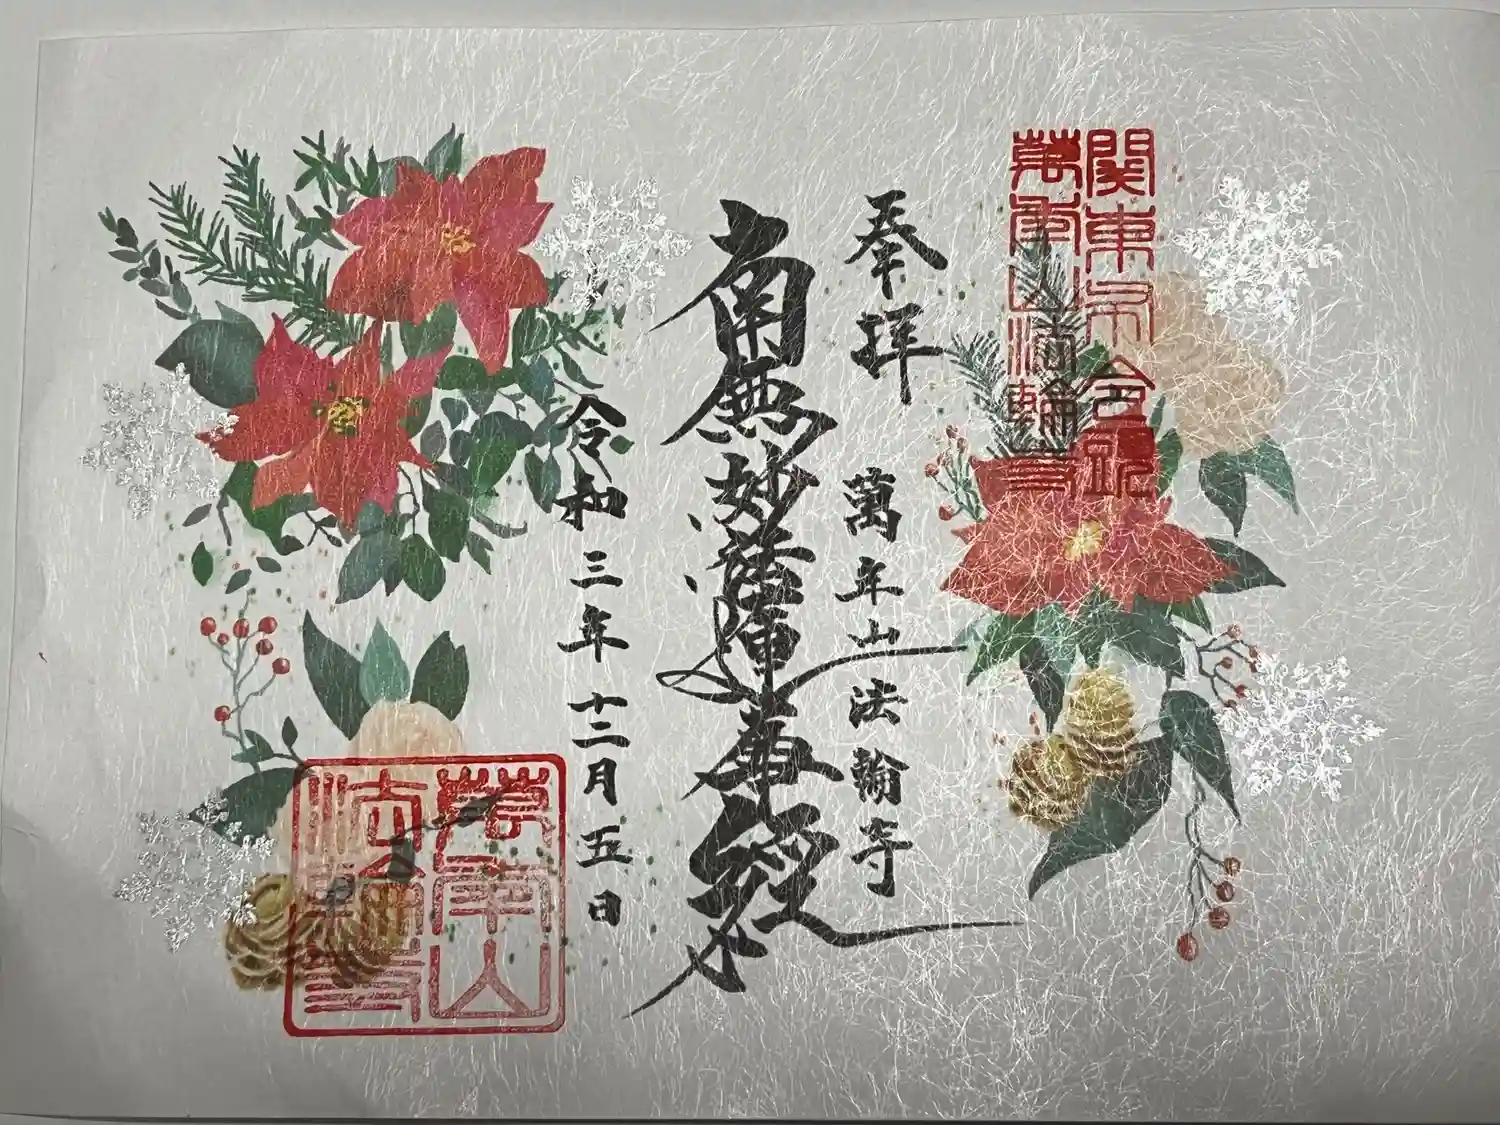 関東
萬年山法輪寺
奉拝 萬年山法輪寺
南無妙法蓮華經
令和三年十二月五日
萬年山
法輪寺